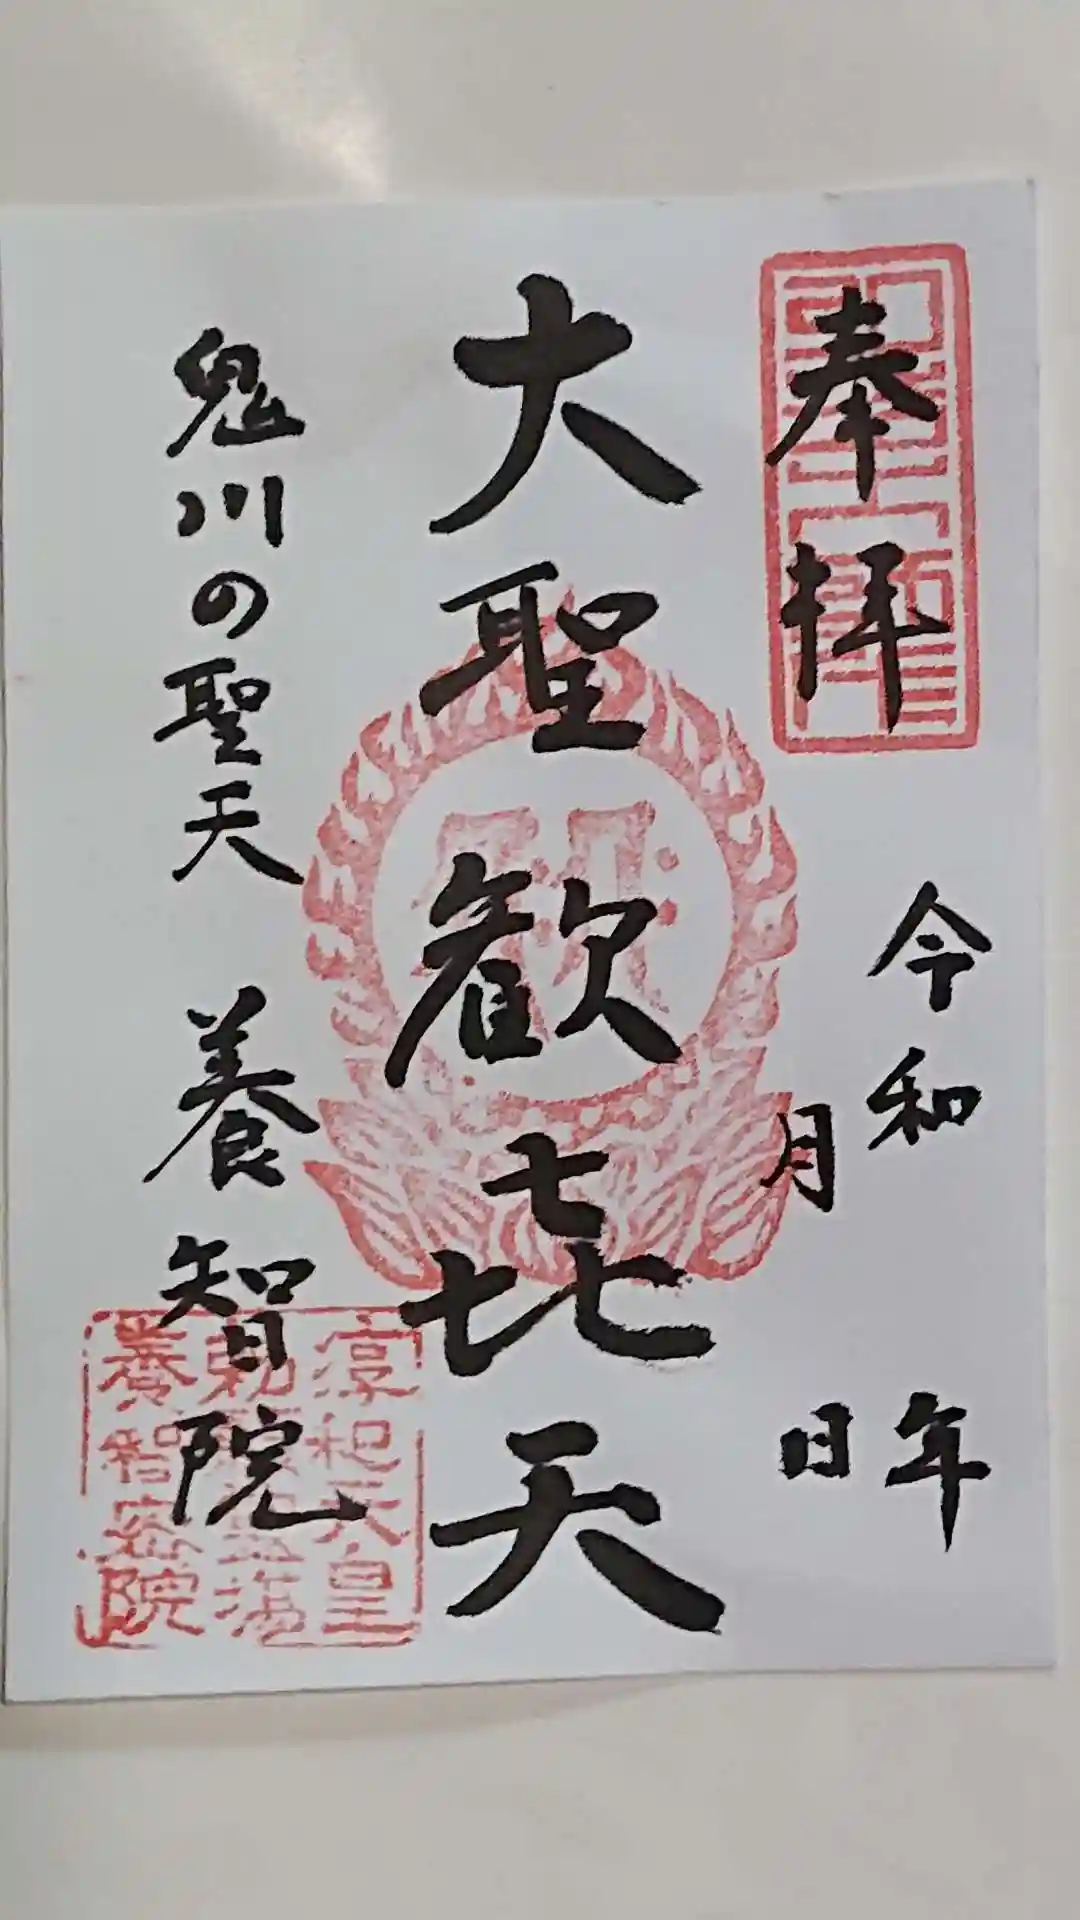 奉拝
令和 年
月 日
大聖歓㐂天
鬼川の聖天 養智院
淳和天皇
養智密院